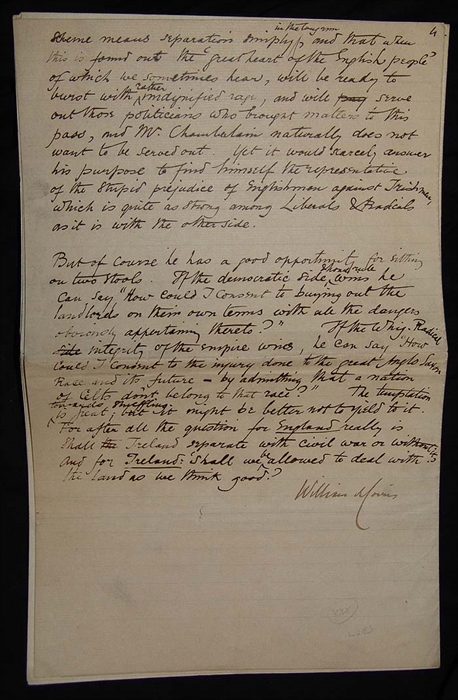 in the long run 4
Scheme means separation simply, and that when
this is found out the "great heart of the English people"
of which we sometimes hear, will be ready to
rather
burst with undignified rage, and will serve
out those politicians who brought matters to this
pass, and Mr. Chamberlain naturally does not
want to be served out. Yet it would scarcely answer
his purpose to find himself the representative
of the stupid prejudice of Englishman against Irishman,
which is quite as strong among Liberals & Radicals
as it is with the other side.
But of course he has a good opportunity for sitting
on two stools. If the democratic side wins he
can say "How could I consent to buying out the
landlords on their own terms with all the dangers
obviously appertaining thereto?" If the Whig-Radical
integrity of the empire wins, he can say "How
could I consent to the injury done to the great Anglo Saxon
Race and its future – by admitting that a nation
of Celts don't belong to that race?" The temptation
towards
is great, but it might be better not to yield to it.
For after all the question for England really is
Shall Ireland separate with civil war or without it?
And for Ireland: Shall we be allowed to deal with
the land as we think good?
William Morris